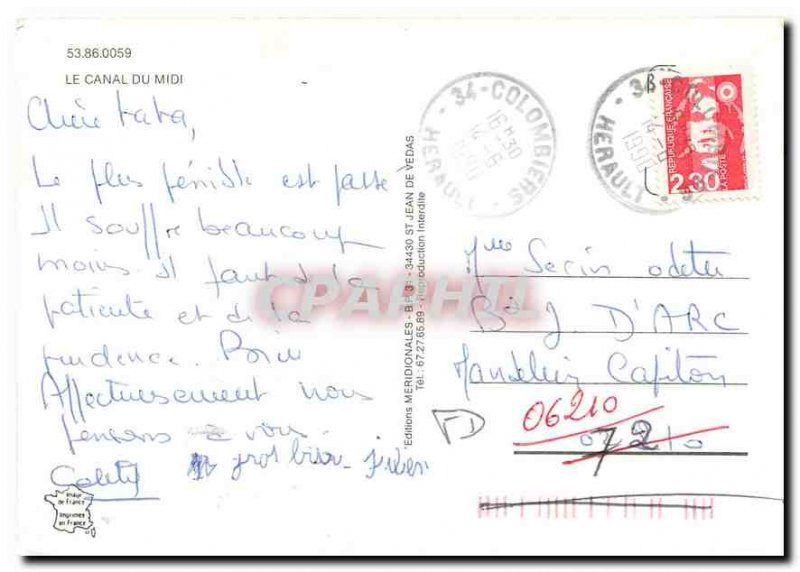 53.86.0059
LE CANAL DU MIDI
Chère tata,
Le plus pénible est passé
Il souffre beaucoup
moins. Il faut de la
patience et de la
prudence.
Affectueusement nous
pensons à vous.
gros bisou
Image
de France
Imprimée
en France
Editions MERIDIONALES - B.P. 3 - 34430 ST JEAN DE VEDAS
Tél.: 67.27.65.89 - Reproduction Interdite
CPAPHIL
34-COLOMBIERS
16H30
1990
HERAULT
34-
1990
HERAULT
REPUBLIQUE FRANÇAISE
2,30
LA POSTE
Mme Serin odette
Bd J D'ARC
Mandelieu Capitou
06210
72
FD